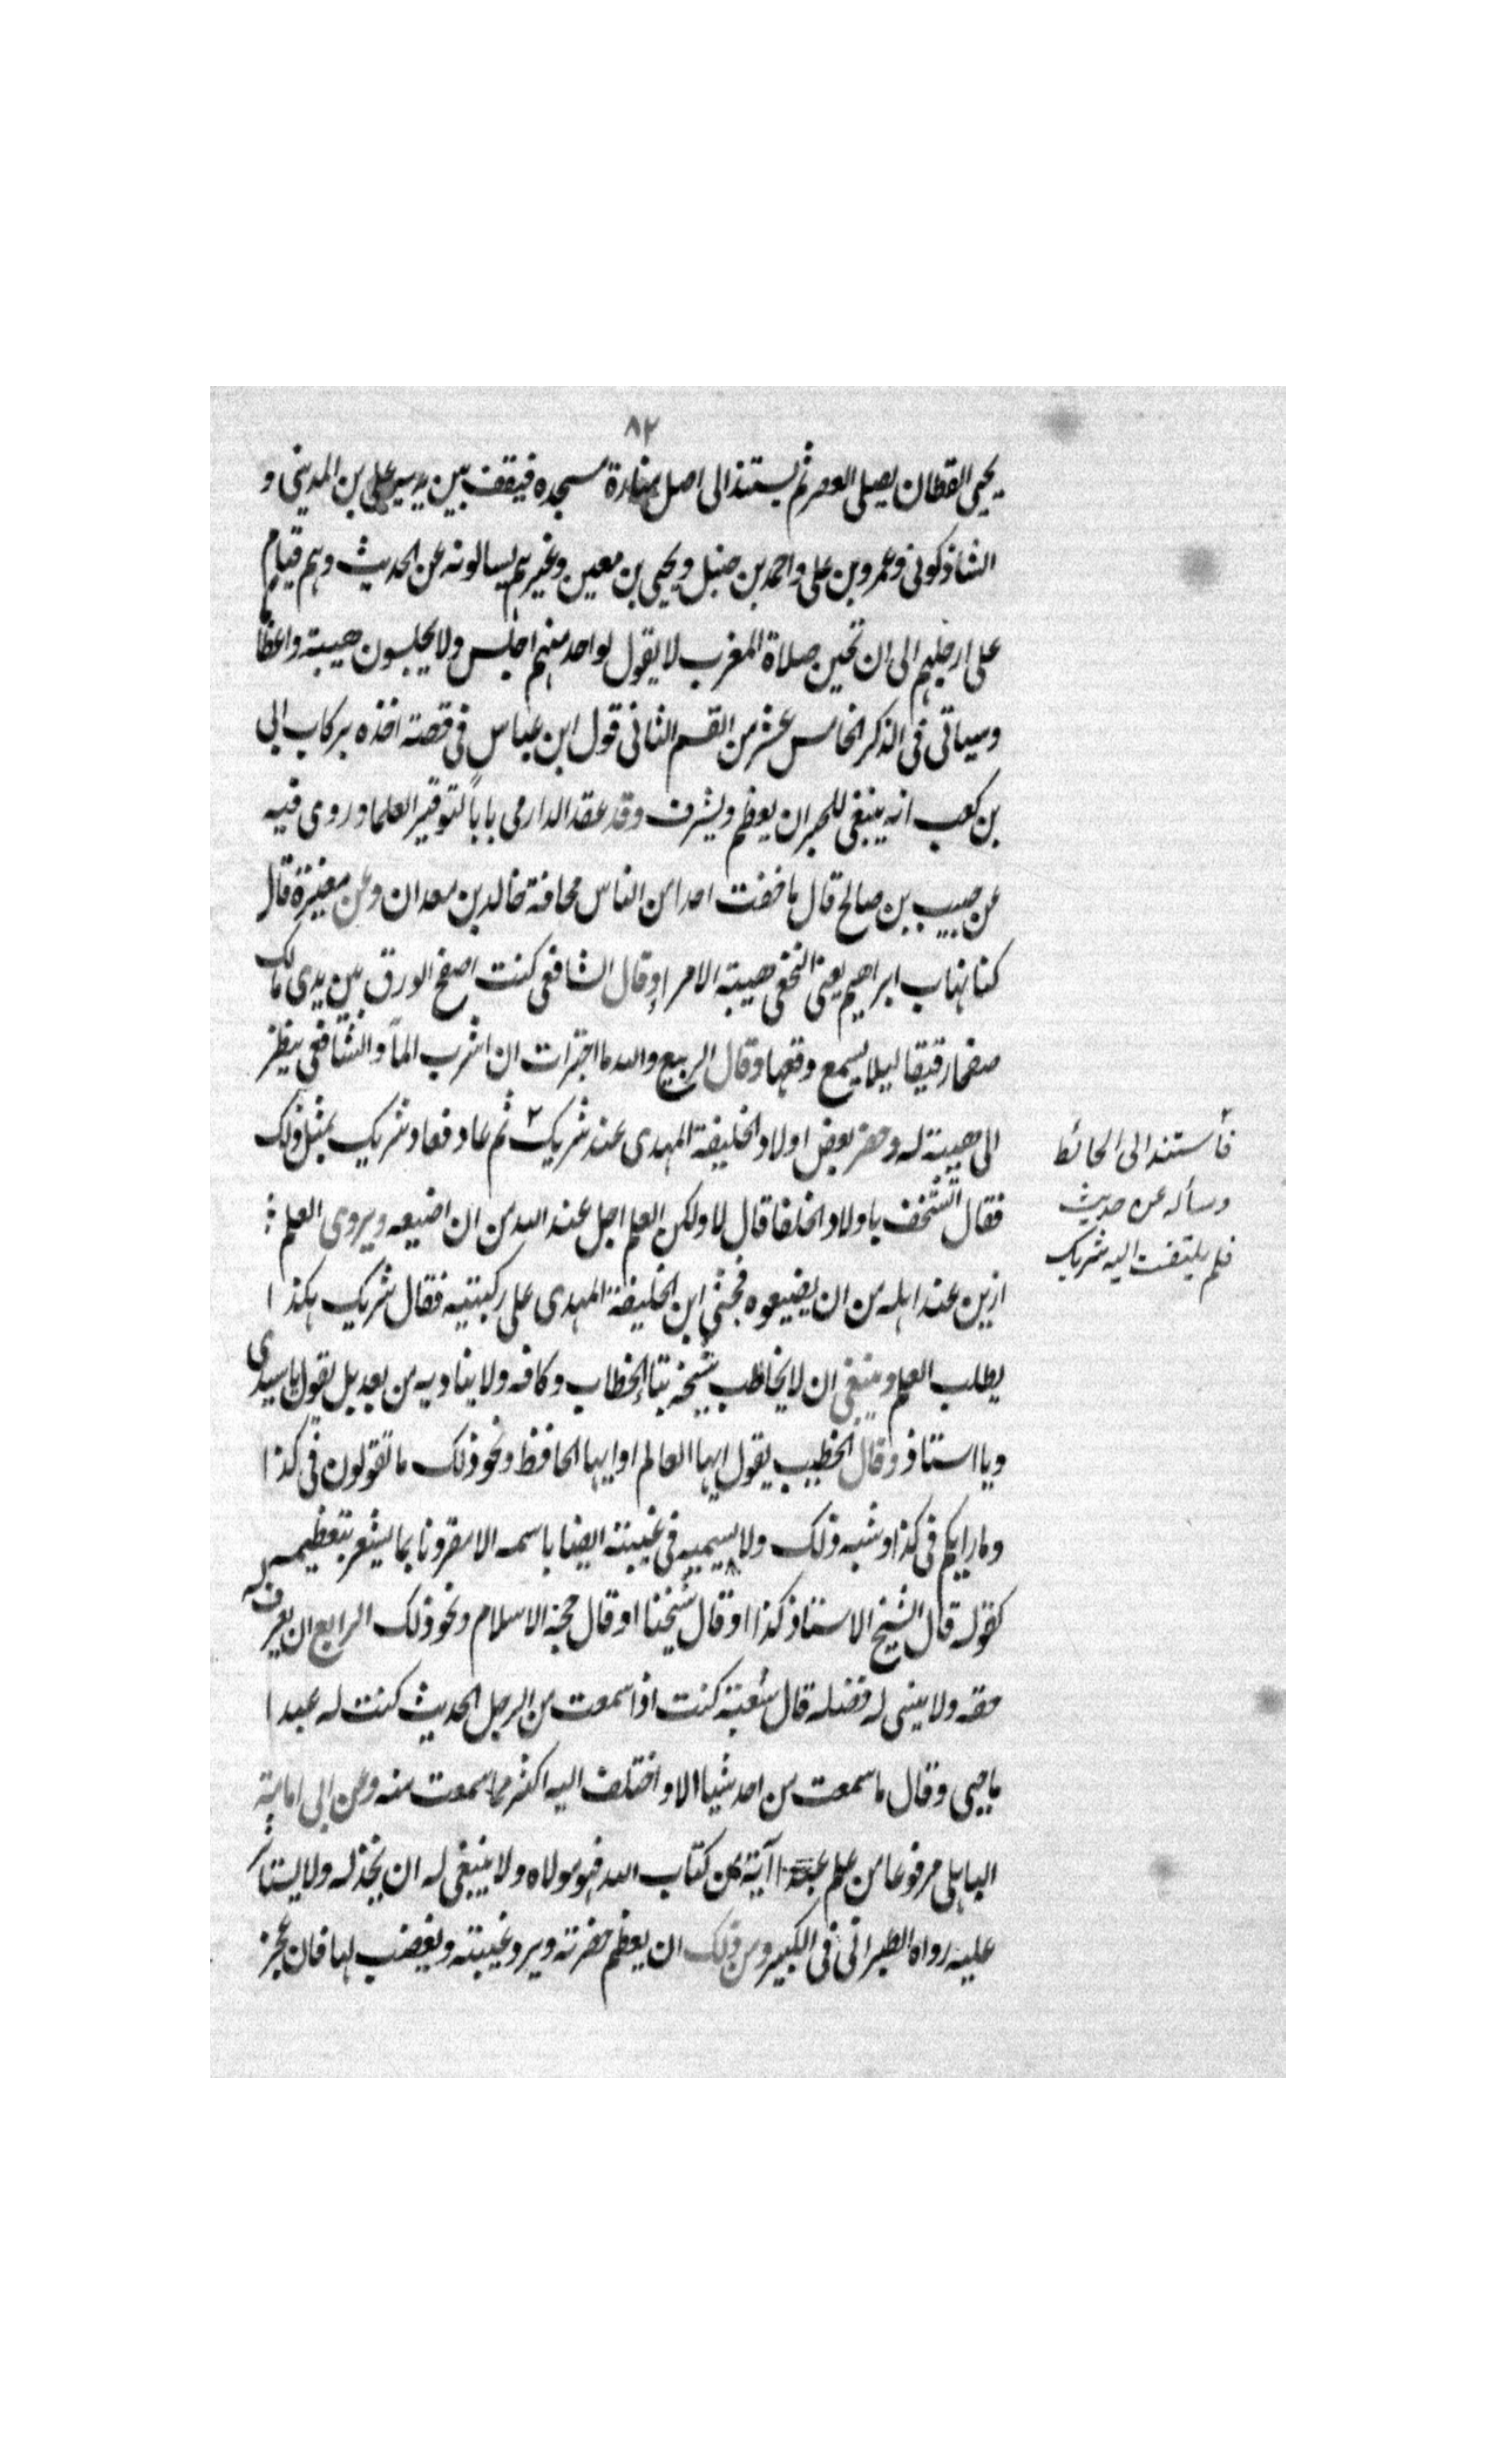 ٨٢
يحيى القطان يصلى العصر ثم يستند الى اصل منارة مسجده فيقف بين يديه على بن المدينى و
الشاذكونى وعمرو بن على واحمد بن حنبل ويحيى بن معين وغيرهم يسالونه عن الحديث وهم قيام
على ارجلهم الى ان تحين صلاة المغرب لا يقول لواحد منهم اجلس ولا يجلسون هيبة واعظاما
وسياتى فى الذكر الخامس عشر من القسم الثانى قول ابن عباس فى قصة اخذه بركاب ابى
بن كعب انه ينبغى للحبر ان يعظم ويشرف وقد عقد الدارمى باباً لتوقير العلما وروى فيه
عن حبيب بن صالح قال ما خفت احدا من الناس مخافة خالد بن معدان وعن مغيرة قال
كنا نهاب ابراهيم يعنى النخعى هيبة الامراء وقال الشافعى كنت اصفح الورق بين يدى مالك
صفحا رقيقا ليلا يسمع وقعها وقال الربيع والله ما اجترات ان اشرب الماء والشافعى ينظر
الى هيبة له وحضر بعض اولاد الخليفة المهدى عند شريك ٢ ثم عاد فعاد شريك بمثل ذلك
فقال اتستخف باولاد الخلفا قال لا ولكن العلم اجل عند الله من ان اضيعه ويروى العلم
ازين عند اهله من ان يضيعوه فجثى ابن الخليفة المهدى على ركبتيه فقال شريك هكذا
يطلب العلم وينبغى ان لا يخاطب شيخه بتاء الخطاب وكافه ولا يناديه من بعد بل يقول يا سيدى
ويا استاذ وقال الخطيب يقول ايها العالم او ايها الحافظ ونحو ذلك ما تقولون فى كذا
وما رايكم فى كذا وشبه ذلك ولا يسميه فى غيبته ايضا باسمه الا مقرونا بما يشعر بتعظيمه
كقوله قال الشيخ الاستاذ كذا او قال شيخنا او قال حجة الاسلام ونحو ذلك الرابع ان يعرف له
حقه ولا ينسى له فضله قال شعبة كنت اذا سمعت من الرجل الحديث كنت له عبدا
ما حيى وقال ما سمعت من احد شيا الا واختلف اليه اكثر مما سمعت منه وعن ابى امامة
الباهلى مرفوعا من علم عبدا آية من كتاب الله فهو مولاه ولا ينبغى له ان يخذله ولا يستاثر
عليه رواه الطبرانى فى الكبير ومن ذلك ان يعظم حضرته ويرد غيبته ويغضب لها فان عجز
فأستند الى الحائط
وسأله عن حديث
فلم يلتفت اليه شريك